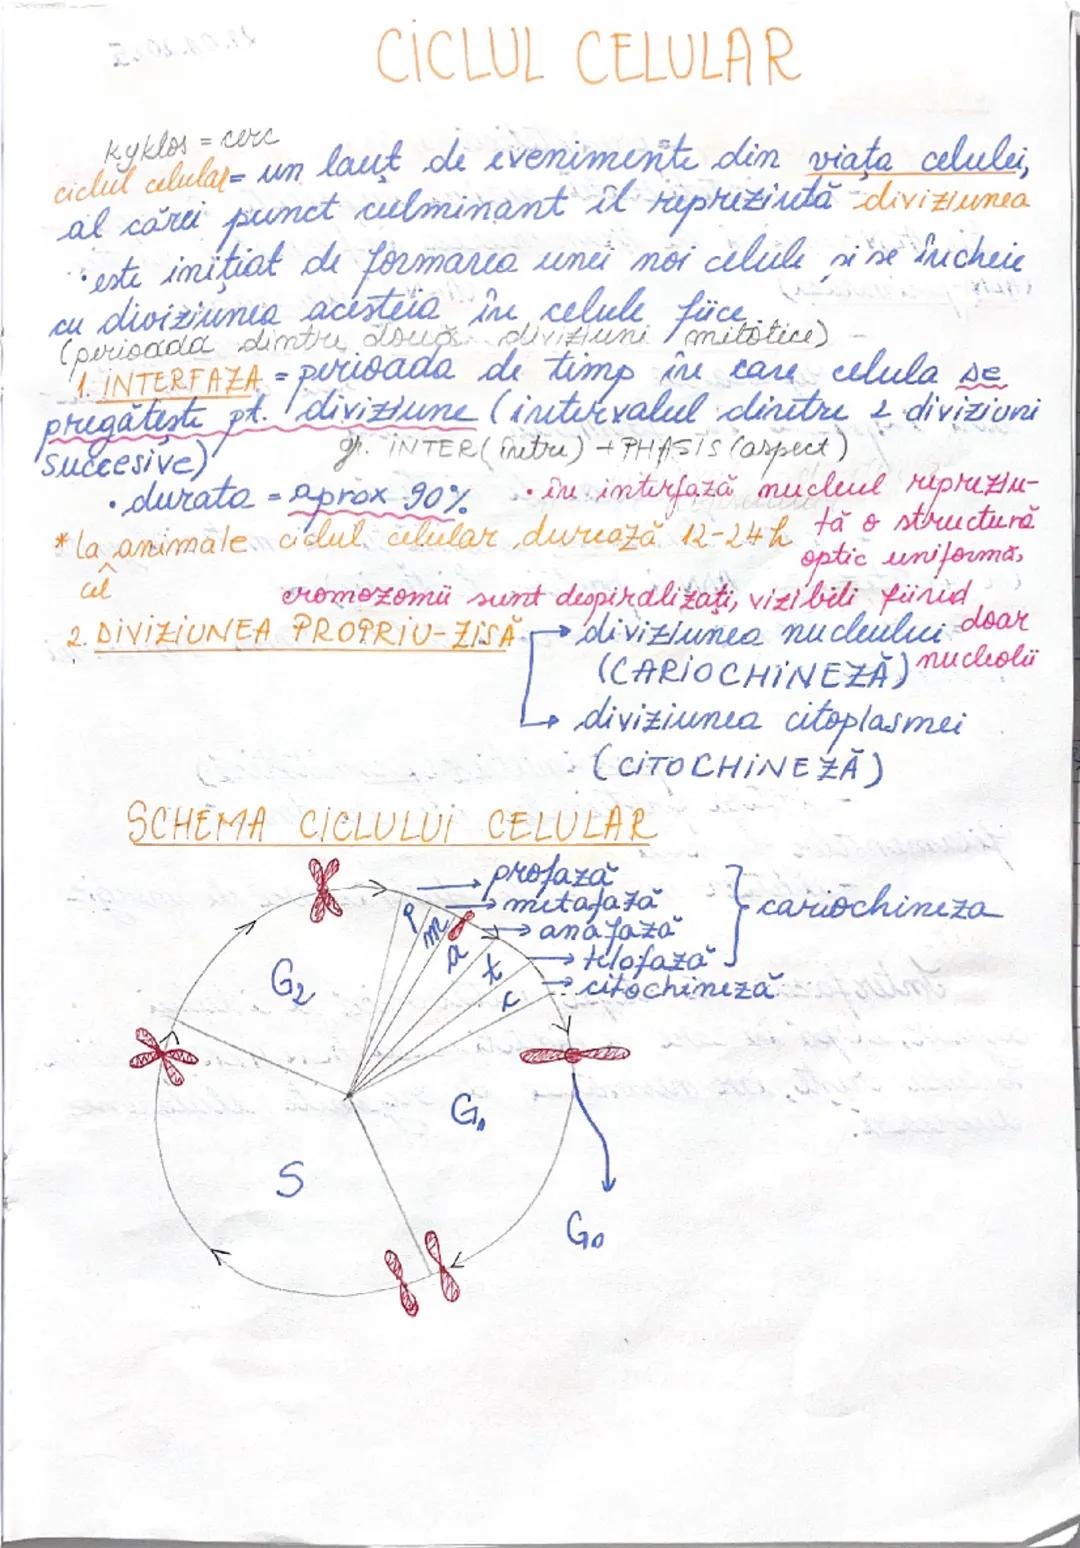 CICLUL CELULAR
kyklos = cerc
ciclul celular = un lanț de evenimente din viața celulei,
al cărei punct culminant îl reprezintă diviziunea
• este inițiat de formarea unei noi celule și se încheie
cu diviziunea acesteia în celule fiice.
(perioada dintre două diviziuni mitotice)
1. INTERFAZA = perioada de timp în care celula se
pregătește pt. diviziune (intervalul dintre 2 diviziuni
succesive)
gr. INTER (între) + PHASIS (aspect)
• durata = aprox 90%
• în interfază nucleul reprezin-
tă o structură
optic uniformă,
* la animale ciclul celular durează 12-24h
cel
cromozomii sunt despiralizați, vizibili fiind
doar
nucleolii
2. DIVIZIUNEA PROPRIU-ZISĂ → diviziunea nucleului
(CARIOCHINEZĂ)
→ diviziunea citoplasmei
(CITOCHINEZĂ)
SCHEMA CICLULUI CELULAR
→ profază
→ metafază
→ anafază
→ telofază
→ citochineză
cariochineza
p
m
a
t
c
G2
G1
S
G0